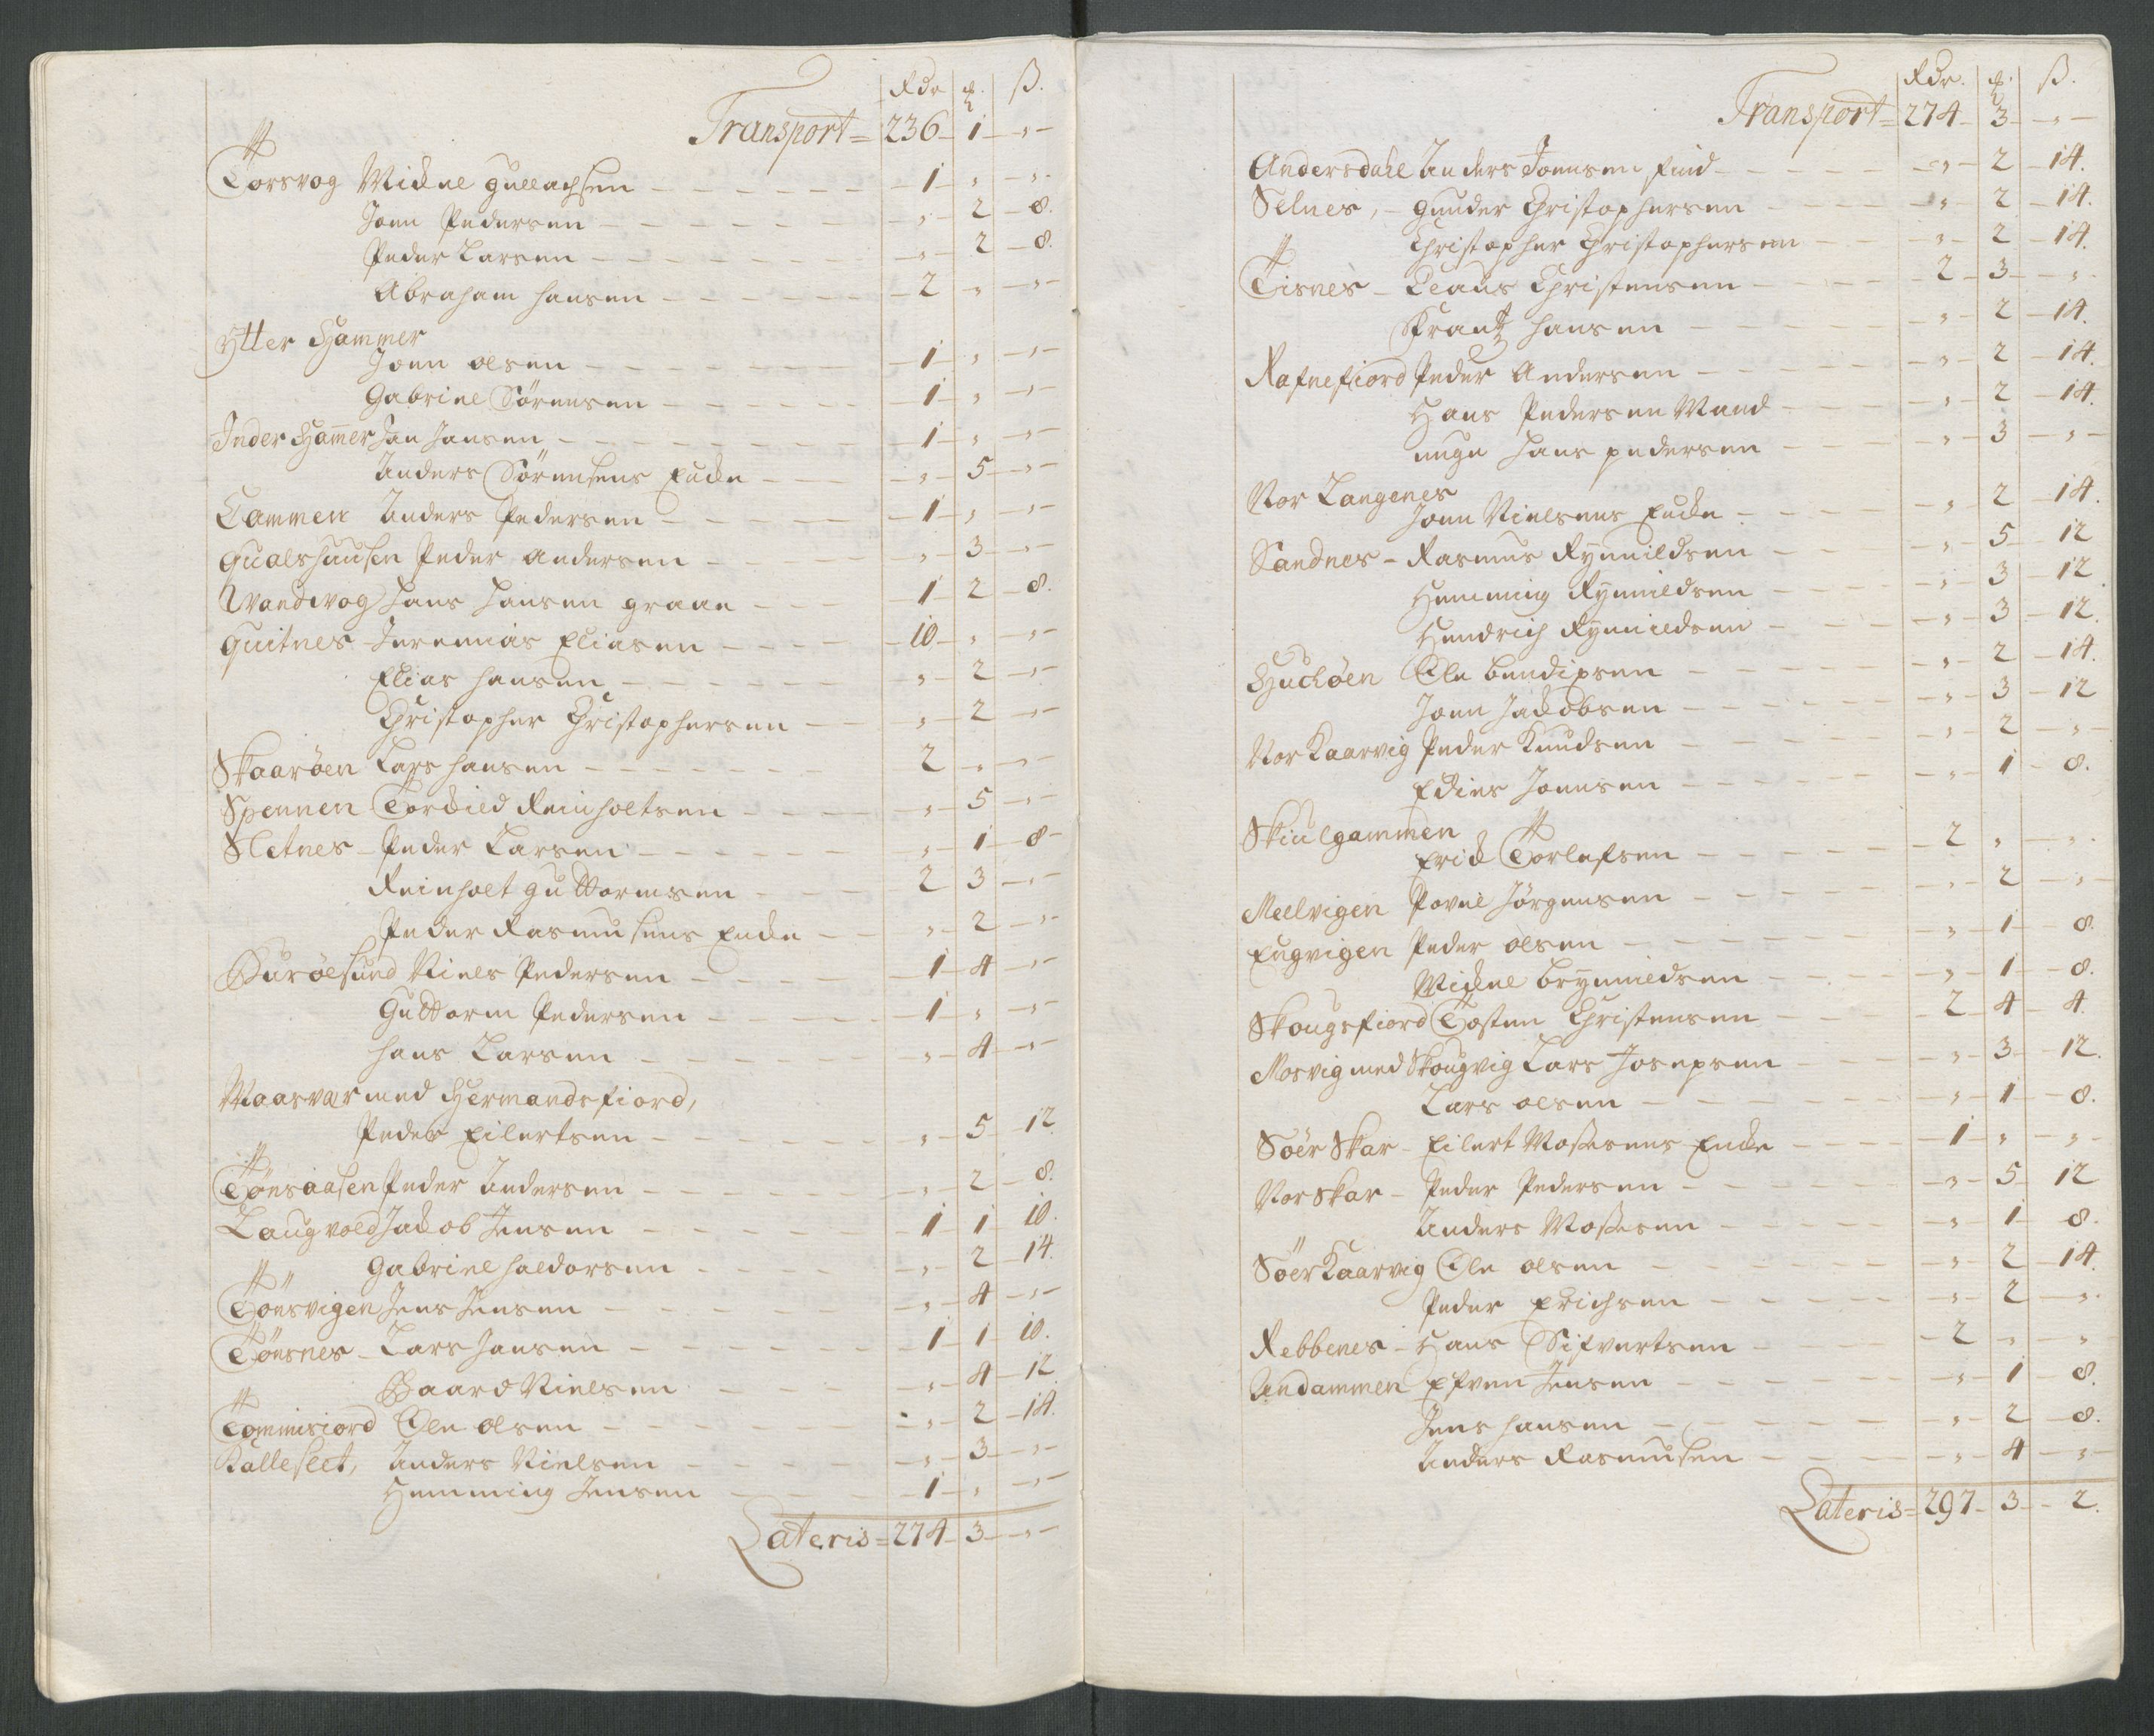 Rdr ß.
Transport = 236 1 "
Torsvog Michel Gullachsen 1 " "
Joen Pedersen " 2 8.
Peder Larsen " 2 8.
Abraham Hansen 2 " "
Ytter Hammer
Joen Olsen 1 " "
Gabriel Sörensen 1 " "
Inder Ham̄er Jan Jansen 1 " "
Anders Sörensens Encke " 5 "
Cammen Anders Pedersen 1 " "
Gualshausen Peder Andersen " 3 "
Wandvog Hans Hansen Graae 1 2 8.
Guitnes Jeremias Eliasen 10 " "
Elias Hansen " 2 "
Christopher Christophersen " 2 "
Skaarøen Lars Hansen 2 " "
Spennen Torchild Reinholtsen " 5 "
Sletnes Peder Larsen " 1 8
Reinholt Guttormsen 2 3 "
Peder Rasmusens Encke " 2 "
Burøesund Niels Pedersen 1 4 "
Guttorm Pedersen 1 " "
Hans Larsen " 4 "
Maasvær med Hermandsfiord,
Peder Eilertsen " 5 12
Tønsaasen Peder Andersen " 2 8.
Laugvold Jacob Jensen 1 1 10.
Gabriel Haldorsen " 2 14.
Tönsvigen Jens Jensen " 4 "
Tønsnes Lars Jansen 1 1 10.
Baard Nielsen " 4 12
Tommisiord Ole Olsen " 2 14.
Kalleslet, Anders Nielsen " 3 "
Hemming Jensen 1 " "
Lateris = 274 3 "
Rdr. ß.
Transport = 274 3 "
Andersdahl Anders Joensen Find " 2 14.
Selnes, Gunder Christophersen " 2 14.
Christopher Christophersen " 2 14.
Tisnes Claus Christensen 2 3 "
Frantz Hansen " 2 14.
Rafnefiord Peder Andersen " 2 14.
Hans Pedersen Mand " 2 14.
unge Hans Pedersen " 3 "
Nor Langenes
Joen Nielsens Encke " 2 14.
Sandnes Rasmus Rynnildsen " 5 12
Hemming Rynnildsen " 3 12.
Hendrich Rynnildsen " 3 12.
Huchöen Ole Bendixsen " 2 14.
Joen Jackobsen " 3 12
Nor Kaarvig Peder Knudsen " 2 "
Edies Joensen " 1 8.
Skiulgammen
Erick Torlefsen 2 " "
Meelvigen Povel Jørgensen " 2 "
Engvigen Peder Olsen " 1 8.
Michel Brynnildsen " 1 8.
Skougsfiord Tosten Christensen 2 4 4.
Mosvig med Skougvig Lars Josepsen " 3 12.
Lars Olsen " 1 8.
Söer Skar Eilert Mosesens Encke 1 " "
Nor Skar Peder Pedersen " 5 12
Anders Mosesen " 1 8.
Söer Kaarvig Ole Olsen " 2 14.
Peder Erichsen " 2 "
Rebbenes Hans Sifvertsen 2 " "
Andammen Efven Jensen " 1 8.
Jens Hansen " 2 8.
Anders Rasmusen " 4 "
Lateris = 297 3 2.